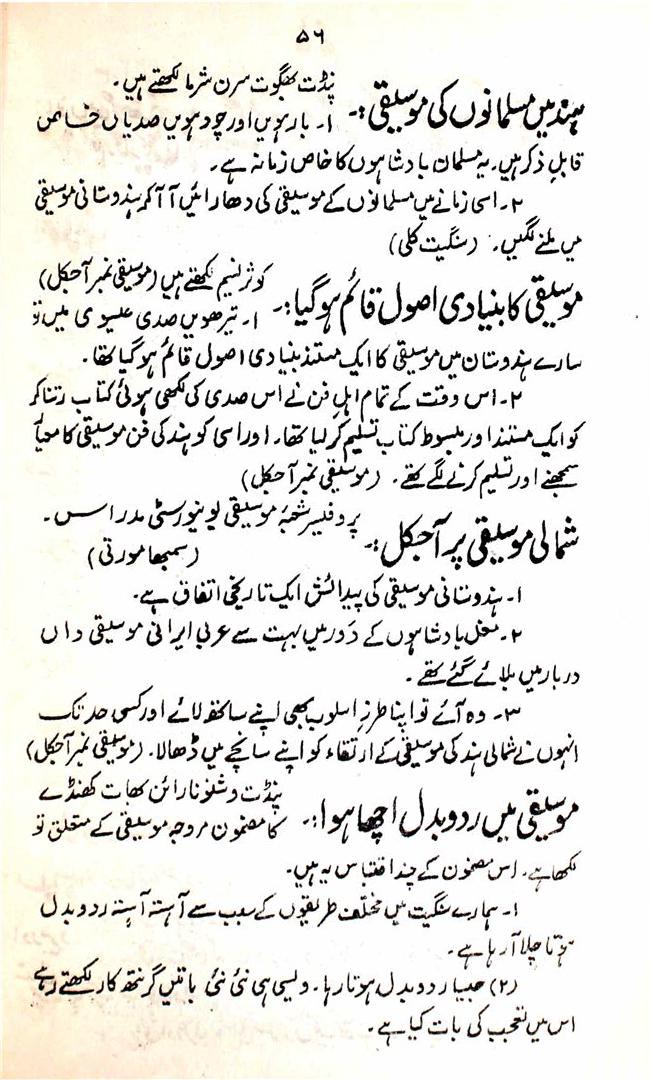 ۵۶
ہند میں مسلمانوں کی موسیقی :۔ پنڈت بھگوت سرن شرما لکھتے ہیں۔
۱۔ بارہویں اور چودہویں صدیاں خاص
قابلِ ذکر ہیں۔ یہ مسلمان بادشاہوں کا خاص زمانہ ہے۔
۲۔ اسی زمانے میں مسلمانوں کے موسیقی کی دھارائیں آ آکر ہندوستانی موسیقی
میں ملنے لگیں۔ (سنگیت کلی)
موسیقی کا بنیادی اصول قائم ہوگیا :۔ کوثر نسیم لکھتے ہیں (موسیقی نمبر آجکل)
۱۔ تیرھویں صدی عیسوی میں تو
سارے ہندوستان میں موسیقی کا ایک مستند بنیادی اصول قائم ہوگیا تھا۔
۲۔ اس وقت کے تمام اہلِ فن نے اس صدی کی لکھی ہوئی کتاب رتناکر
کو ایک مستند اور مبسوط کتاب تسلیم کرلیا تھا۔ اور اسی کو ہند کی فن موسیقی کا معیار
سمجھنے اور تسلیم کرنے لگے تھے۔ (موسیقی نمبر آجکل)
شمالی موسیقی پر آجکل :۔ پروفیسر شعبۂ موسیقی یونیورسٹی مدراس۔
(سمبھامورتی)
۱۔ ہندوستانی موسیقی کی پیدائش ایک تاریخی اتفاق ہے۔
۲۔ مغل بادشاہوں کے دَور میں بہت سے عربی ایرانی موسیقی داں
دربار میں بلائے گئے تھے۔
۳۔ وہ آئے تو اپنا طرزِ اسلوب بھی اپنے ساتھ لائے اور کسی حد تک
انہوں نے شمالی ہند کی موسیقی کے ارتقاء کو اپنے سانچے میں ڈھالا۔ (موسیقی نمبر آجکل)
موسیقی میں ردوبدل اچھا ہوا :۔ پنڈت وشنو نارائن بھات کھنڈے
کا مضمون مروجہ موسیقی کے متعلق تو
لکھا ہے۔ اس مضمون کے چند اقتباس یہ ہیں۔
۱۔ ہمارے سنگیت میں مختلف طریقوں کے سبب سے آہستہ آہستہ ردوبدل
ہوتا چلا آرہا ہے۔
(۲) جیسا ردوبدل ہوتا رہا۔ ویسی ہی نئی نئی باتیں گرنتھ کار لکھتے رہے
اس میں تعجب کی بات کیا ہے۔